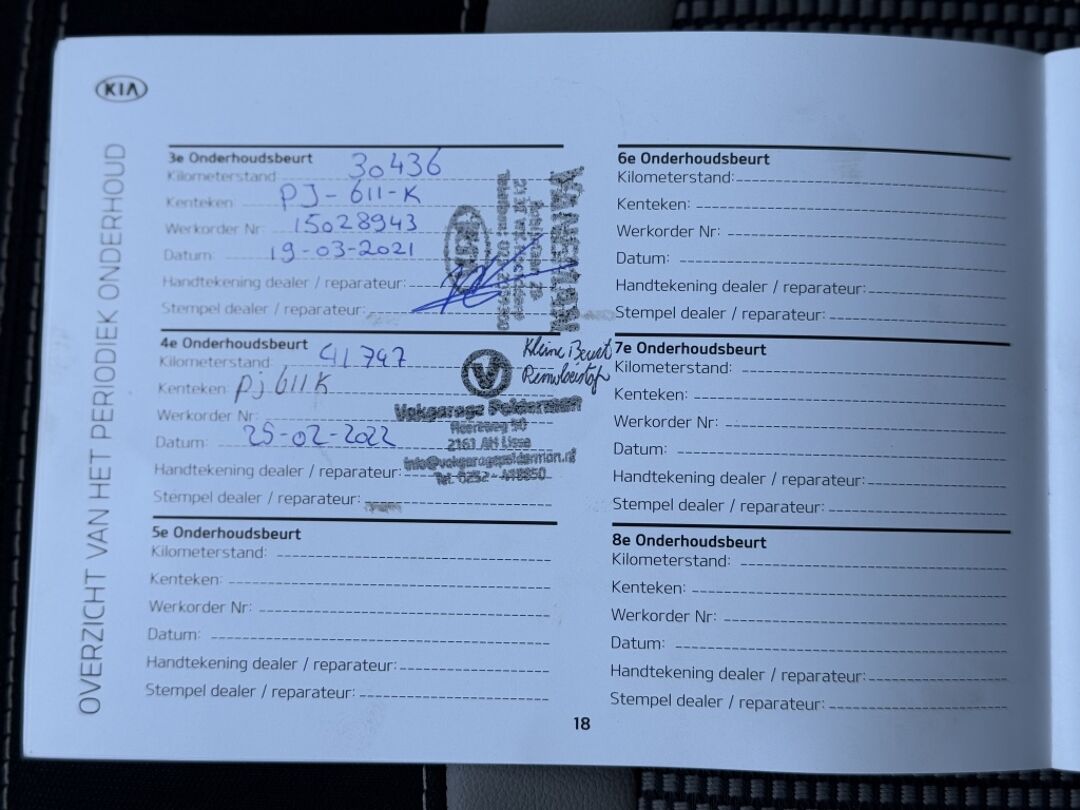 KIA
OVERZICHT VAN HET PERIODIEK ONDERHOUD
3e Onderhoudsbeurt
Kilometerstand 30436
Kenteken PJ-611-K
Werkorder Nr: 15028943
Datum: 19-03-2021
Handtekening dealer / reparateur:
Stempel dealer / reparateur:
KIA
4e Onderhoudsbeurt
Kilometerstand: 41747
Kenteken: PJ 611K
Werkorder Nr:
Datum: 25-02-2022
Handtekening dealer / reparateur:
Stempel dealer / reparateur:
Kleine Beurt
Remvloeistof
Vakgarage Polderman
Heereweg
2161 AH Lisse
info@vakgaragepolderman.nl
Tel. 0252 - 418850
5e Onderhoudsbeurt
Kilometerstand:
Kenteken:
Werkorder Nr:
Datum:
Handtekening dealer / reparateur:
Stempel dealer / reparateur:
6e Onderhoudsbeurt
Kilometerstand:
Kenteken:
Werkorder Nr:
Datum:
Handtekening dealer / reparateur:
Stempel dealer / reparateur:
7e Onderhoudsbeurt
Kilometerstand:
Kenteken:
Werkorder Nr:
Datum:
Handtekening dealer / reparateur:
Stempel dealer / reparateur:
8e Onderhoudsbeurt
Kilometerstand:
Kenteken:
Werkorder Nr:
Datum:
Handtekening dealer / reparateur:
Stempel dealer / reparateur:
18